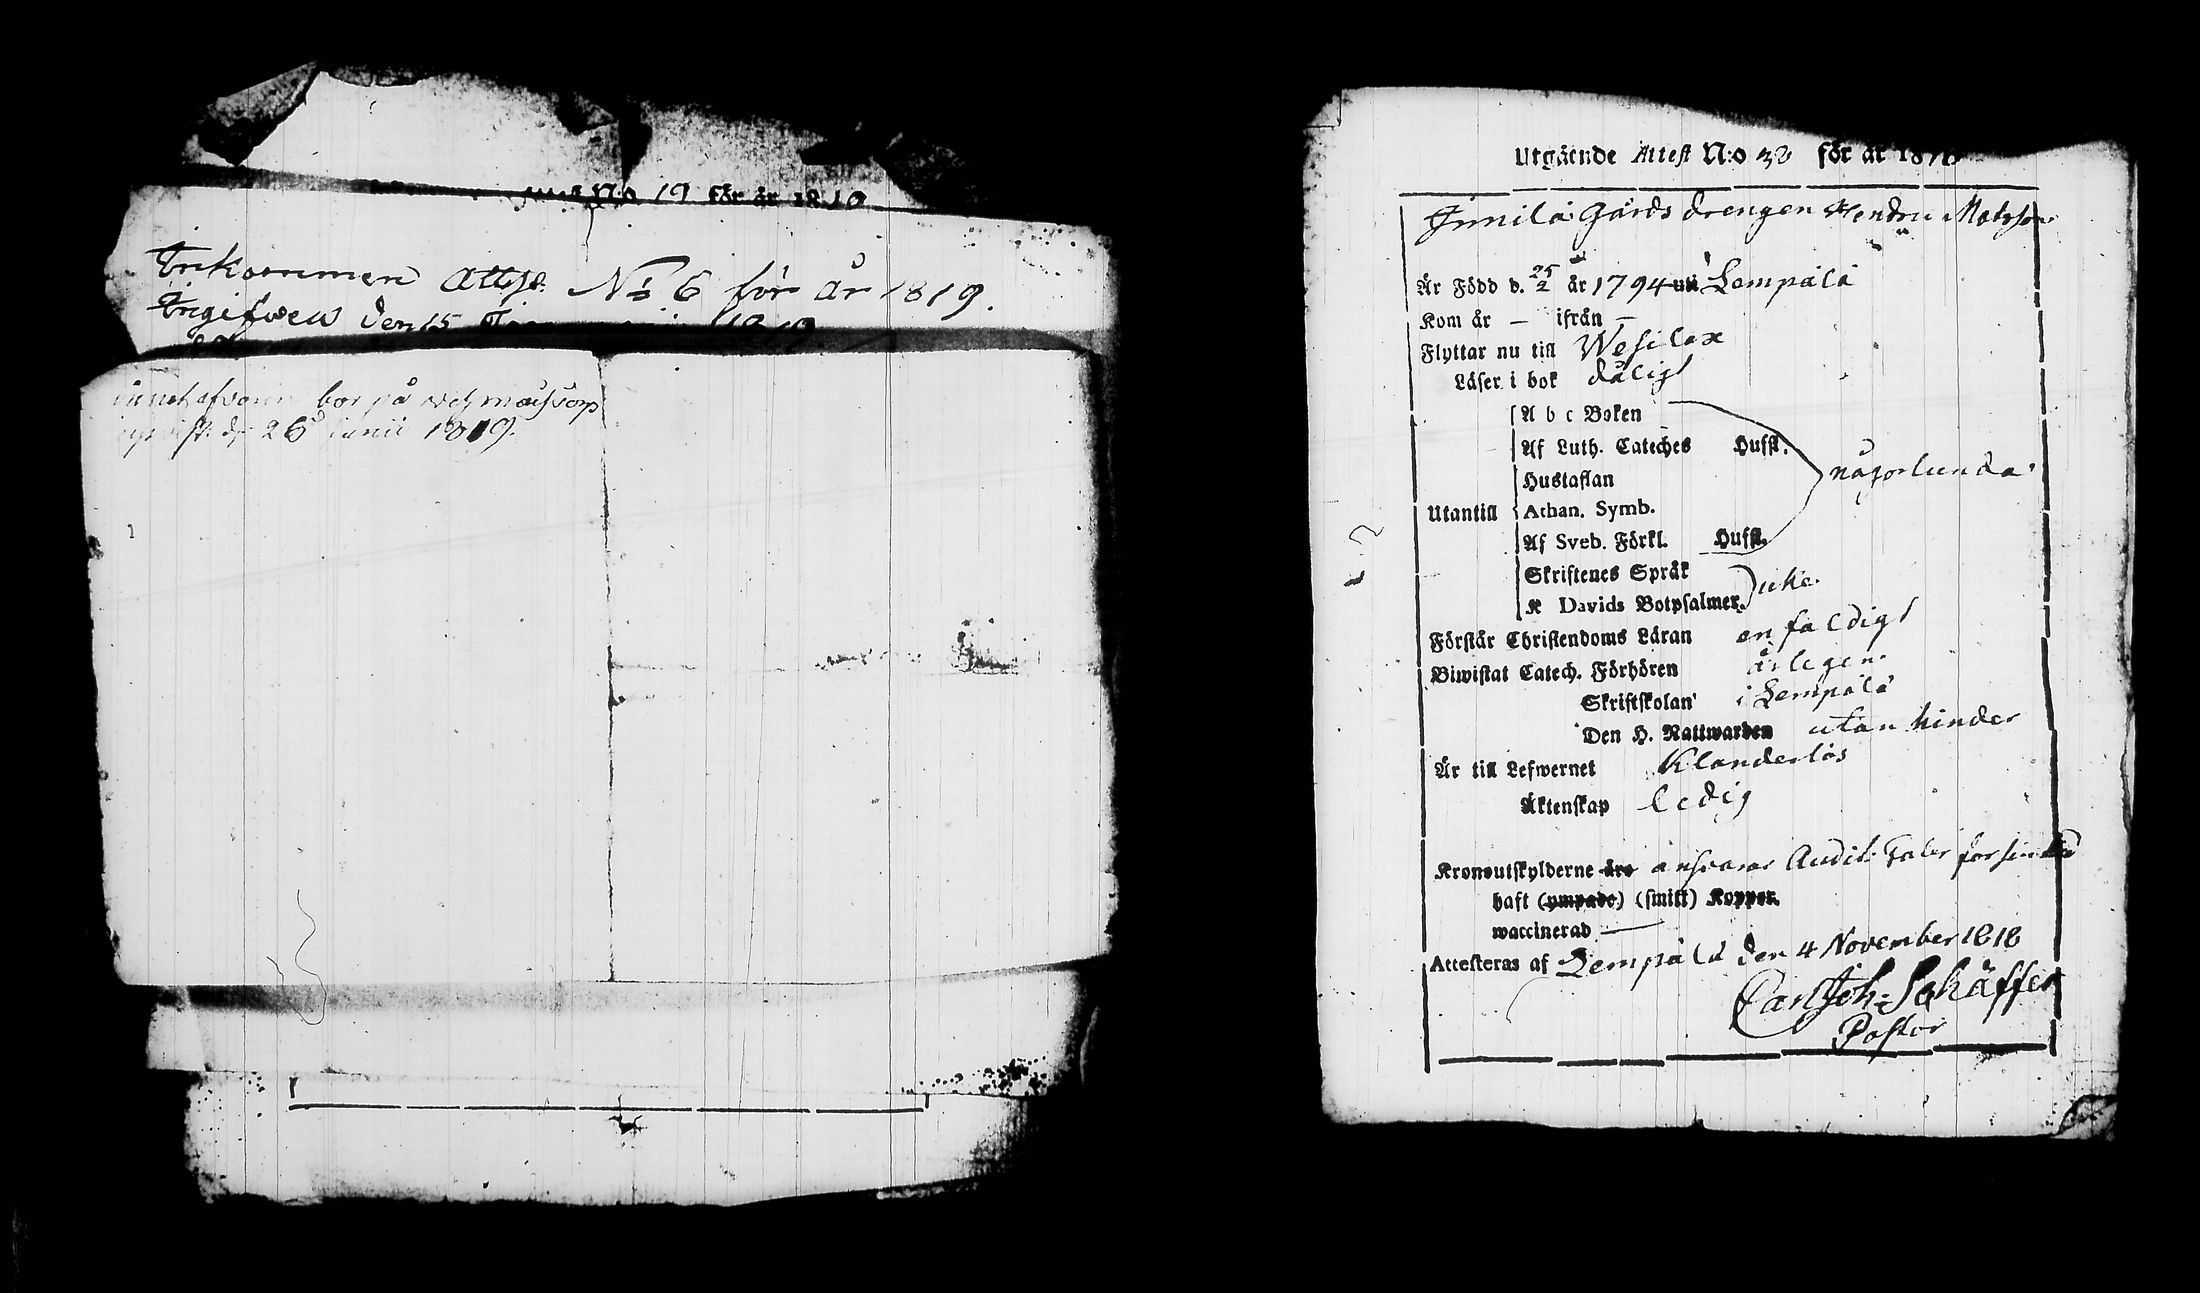 N:o 19 för år 1819
Inkommen Attest N:o 6 för år 1819.
Ingifven den 15
bor på
d. 26 Junii 1819.
Utgående Attest N:o 32 för år 181
Innilä Gårds drengen Hendric Matsson
Är Född d. 25/2 år 1794 uti Lempälä
Kom år — ifrån —
Flyttar nu till Wesilax
Läser i bok dåligt
A b c Boken
Af Luth. Cateches Hufst.
någorlunda
Hustaflan
Utantill Athan. Symb.
Af Sveb. Förkl. Hufst.
Skriftenes Språk
icke
K Davids Botpsalmer.
Förstår Christendoms Läran enfaldigt
Biwistat Catech. Förhören årligen
Skriftskolan i Lempälä
Den H. Nattwarden utan hinder
Är till Lefwernet Klanderlös
Äktenskap ledig
Kronoutskylderne äro ansvarar för
haft (ympade) (smitt) Koppor.
waccinerad —
Attesteras af Lempälä den 4 November 1818
Carl Joh: Schäffer
Pastor